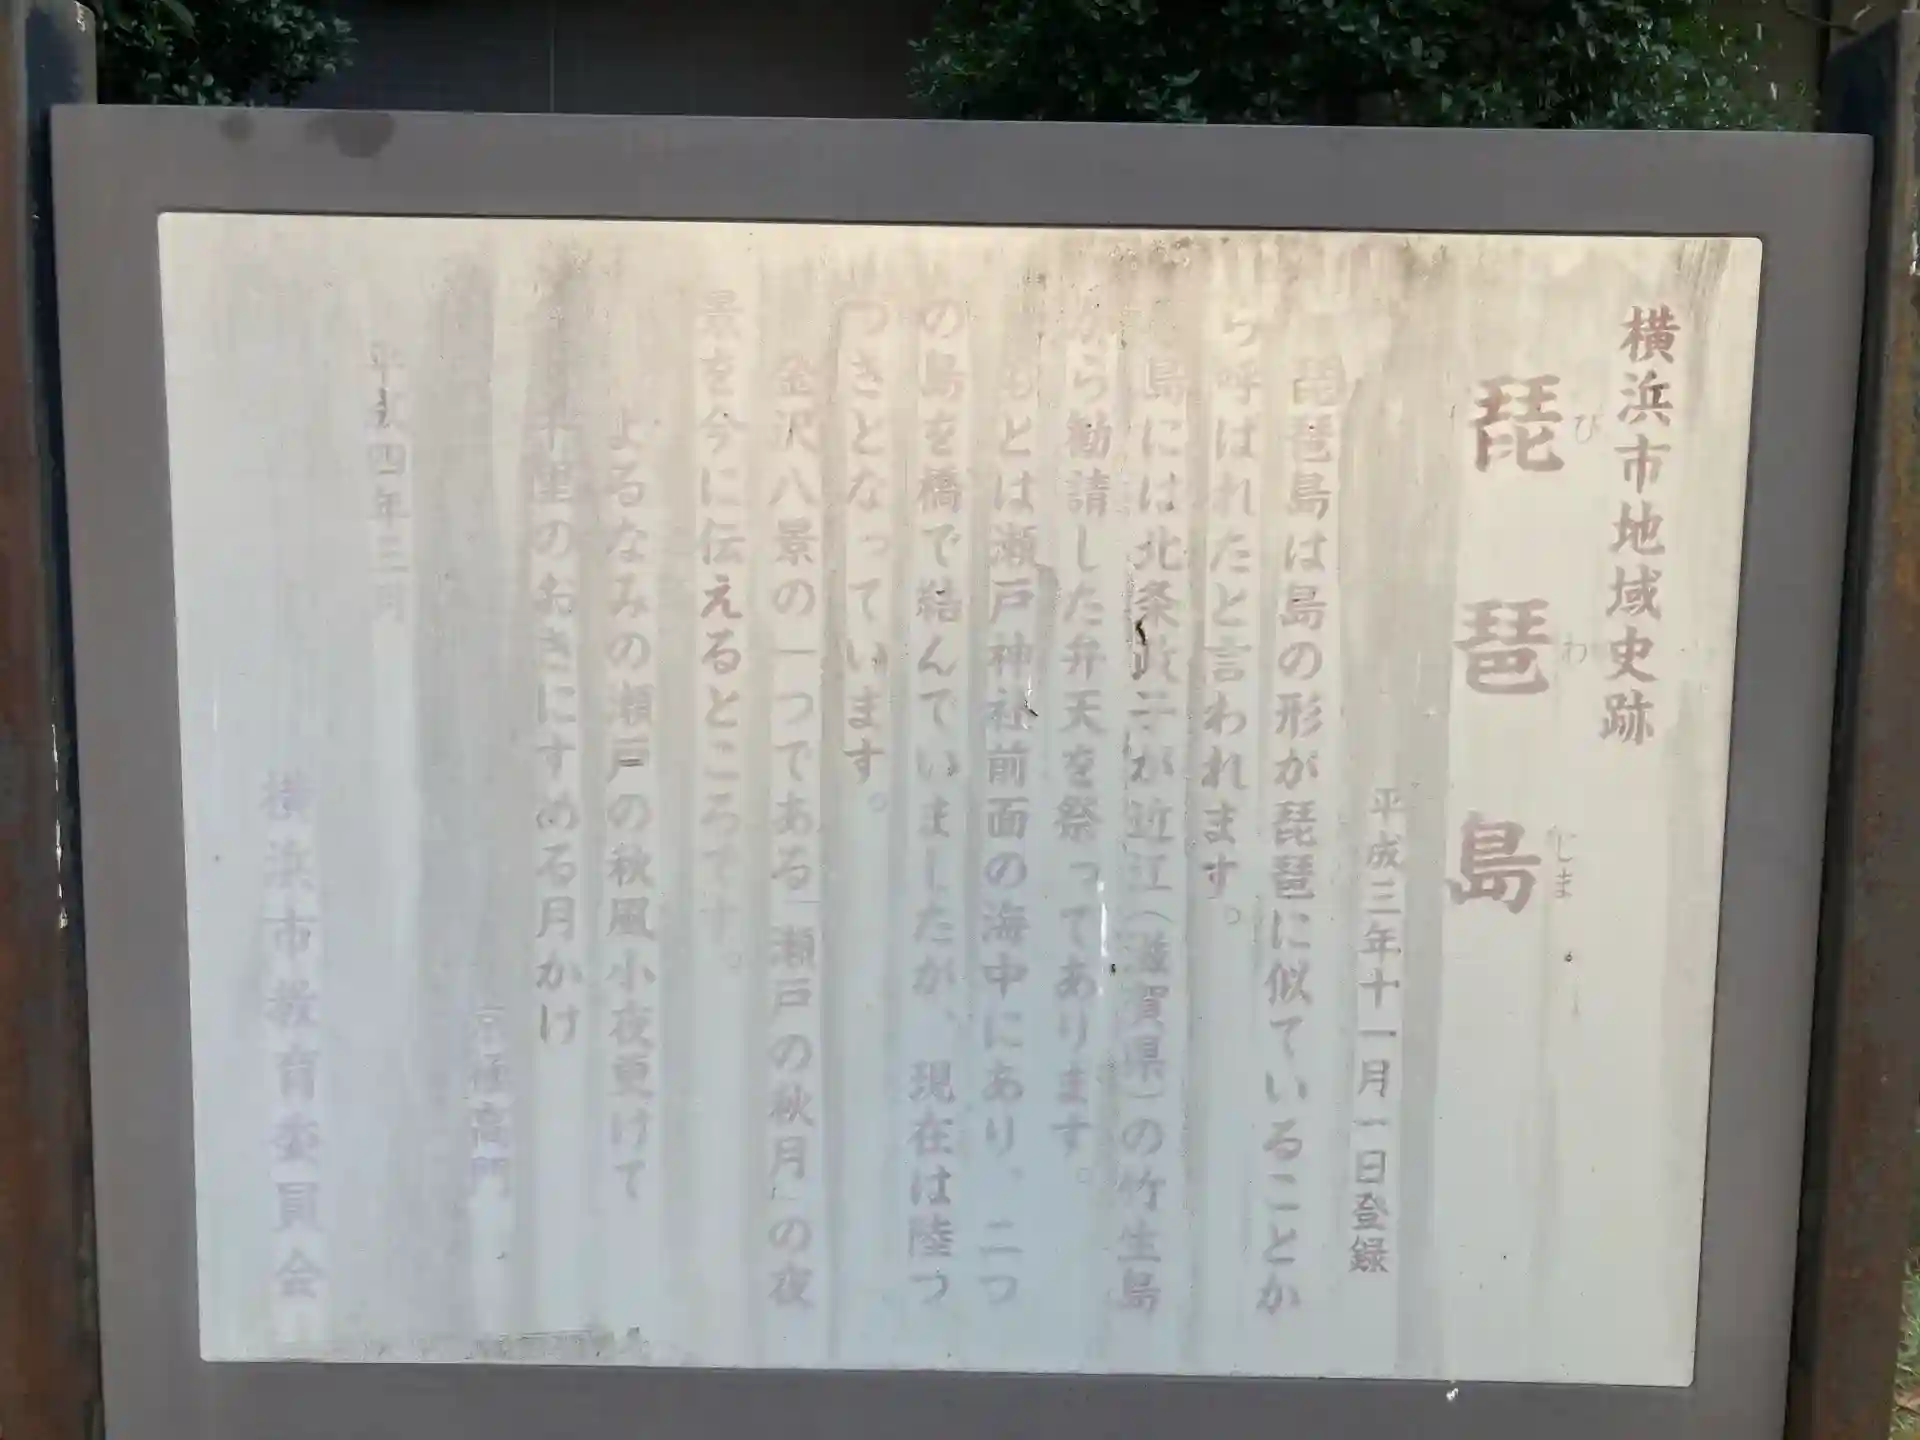 横浜市地域史跡
琵琶島
びわじま
平成三年十一月一日登録
琵琶島は島の形が琵琶に似ていることか
ら呼ばれたと言われます。
島には北条政子が近江(滋賀県)の竹生島
から勧請した弁天を祭ってあります。
もとは瀬戸神社前面の海中にあり、二つ
の島を橋で結んでいましたが、現在は陸つ
づきとなっています。
金沢八景の一つである「瀬戸の秋月」の夜
景を今に伝えるところです。
よるなみの瀬戸の秋風小夜更けて
千里のおきにすめる月かけ
京極高門
平成四年三月
横浜市教育委員会